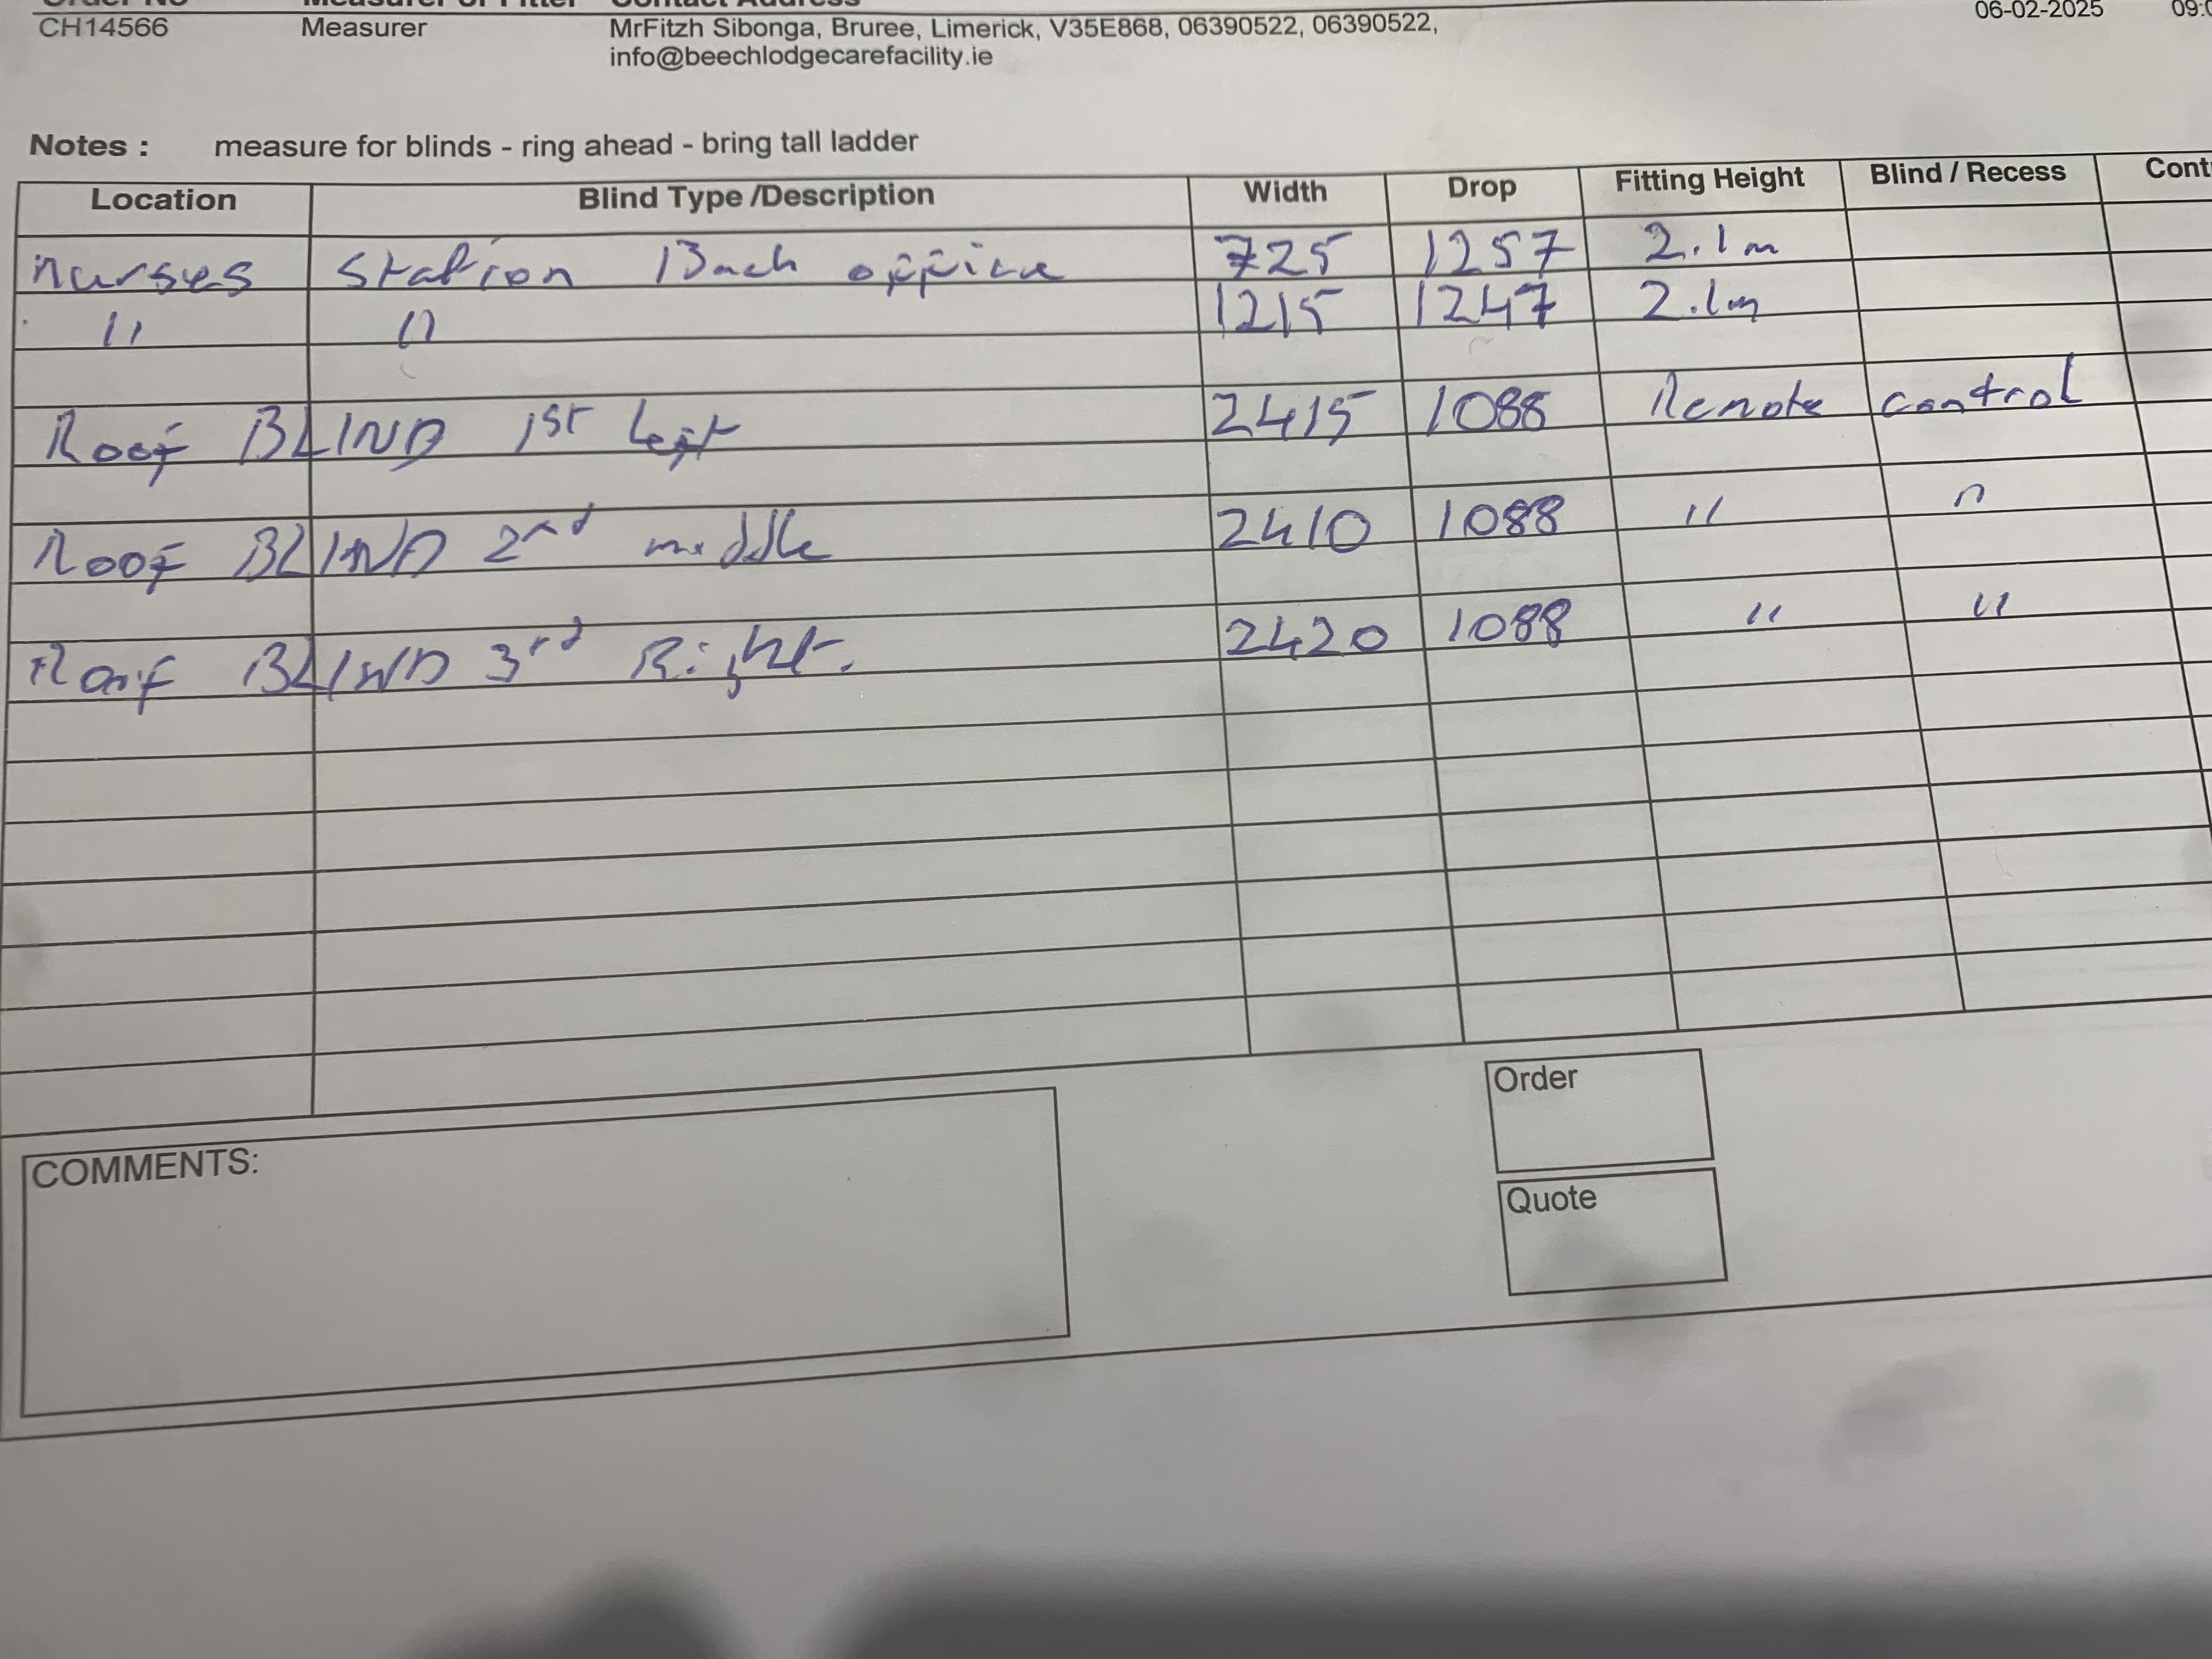 Order No Measurer or Fitter Contact Address
CH14566 Measurer MrFitzh Sibonga, Bruree, Limerick, V35E868, 06390522, 06390522, 06-02-2025 09:0
info@beechlodgecarefacility.ie
Notes : measure for blinds - ring ahead - bring tall ladder
Location Blind Type /Description Width Drop Fitting Height Blind / Recess Cont
nurses station Back office 725 1257 2.1m
" " 1215 1247 2.1m
Roof BLIND 1st Left 2415 1088 Remote control
Roof BLIND 2nd middle 2410 1088 " "
Roof BLIND 3rd Right. 2420 1088 " "
COMMENTS:
Order
Quote